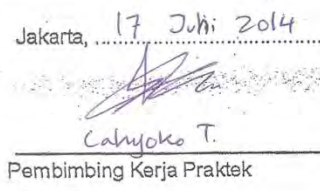 Jakarta, 17 Juni 2014
Cahyoko T.
Pembimbing Kerja Praktek